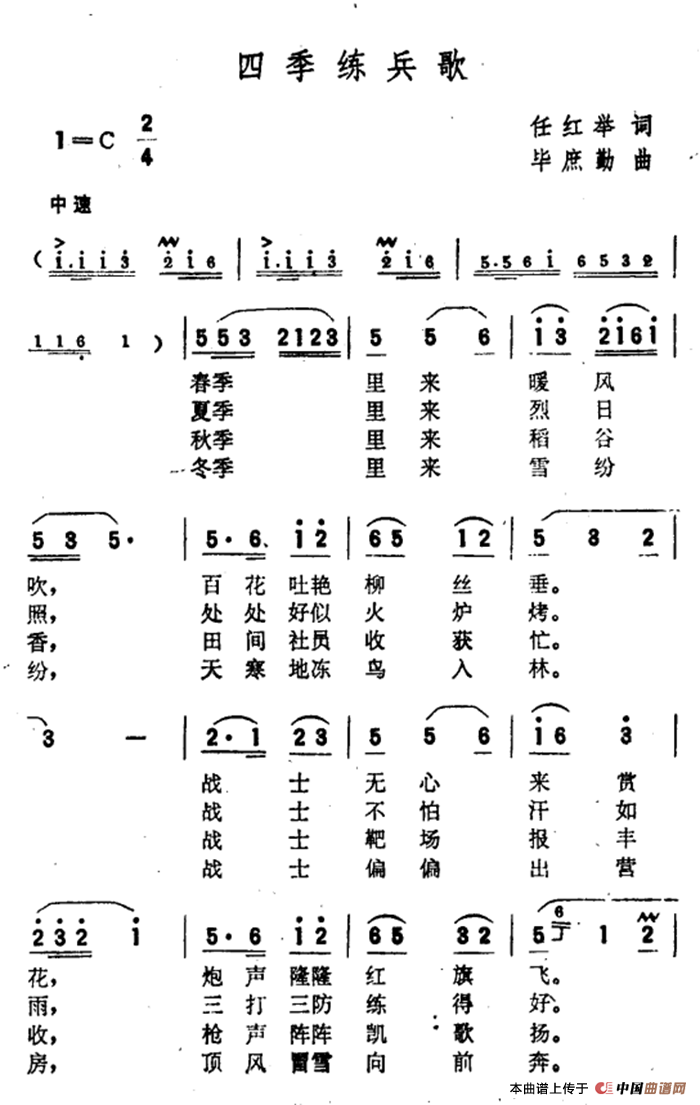 四季练兵歌
1=C 2/4
任红举 词
毕庶勤 曲
中速
( i. i i 3 2 i 6 | i. i i 3 2 i 6 | 5. 5 6 i 6 5 3 2
1 1 6 1 ) | 5 5 3 2 1 2 3 | 5 5 6 | i 3 2 i 6 i |
春季 里来 暖风
夏季 里来 烈日
秋季 里来 稻谷
冬季 里来 雪纷
5 3 5. | 5. 6 i 2 | 6 5 1 2 | 5 3 2 |
吹, 百花吐艳柳丝垂。
照, 处处好似火炉烤。
香, 田间社员收获忙。
纷, 天寒地冻鸟入林。
3 — | 2. 1 2 3 | 5 5 6 | i 6 3 |
战士无心来赏
战士不怕汗如
战士靶场报丰
战士偏偏出营
2 3 2 i | 5. 6 i 2 | 6 5 3 2 | 6 5 1 2 |
花, 炮声隆隆红旗飞。
雨, 三打三防练得好。
收, 枪声阵阵凯歌扬。
房, 顶风冒雪向前奔。
本曲谱上传于 中国曲谱网